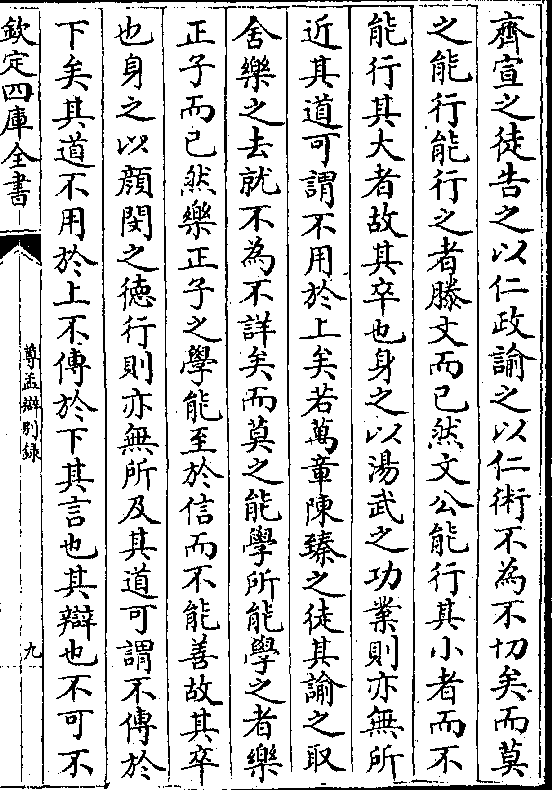 齊宣之徒告之以仁政諭之以仁術不為不切矣而莫
之能行能行之者滕文而已然文公能行其小者而不
能行其大者故其卒也身之以湯武之功業則亦無所
近其道可謂不用於上矣若萬章陳臻之徒其諭之取
舍樂之去就不為不詳矣而莫之能學所能學之者樂
正子而已然樂正子之學能至於信而不能善故其卒
也身之以顔閔之徳行則亦無所及其道可謂不傳於
下矣其道不用於上不傳於下其言也其辯也不可不
欽定四庫全書
尊孟辯别錄
九